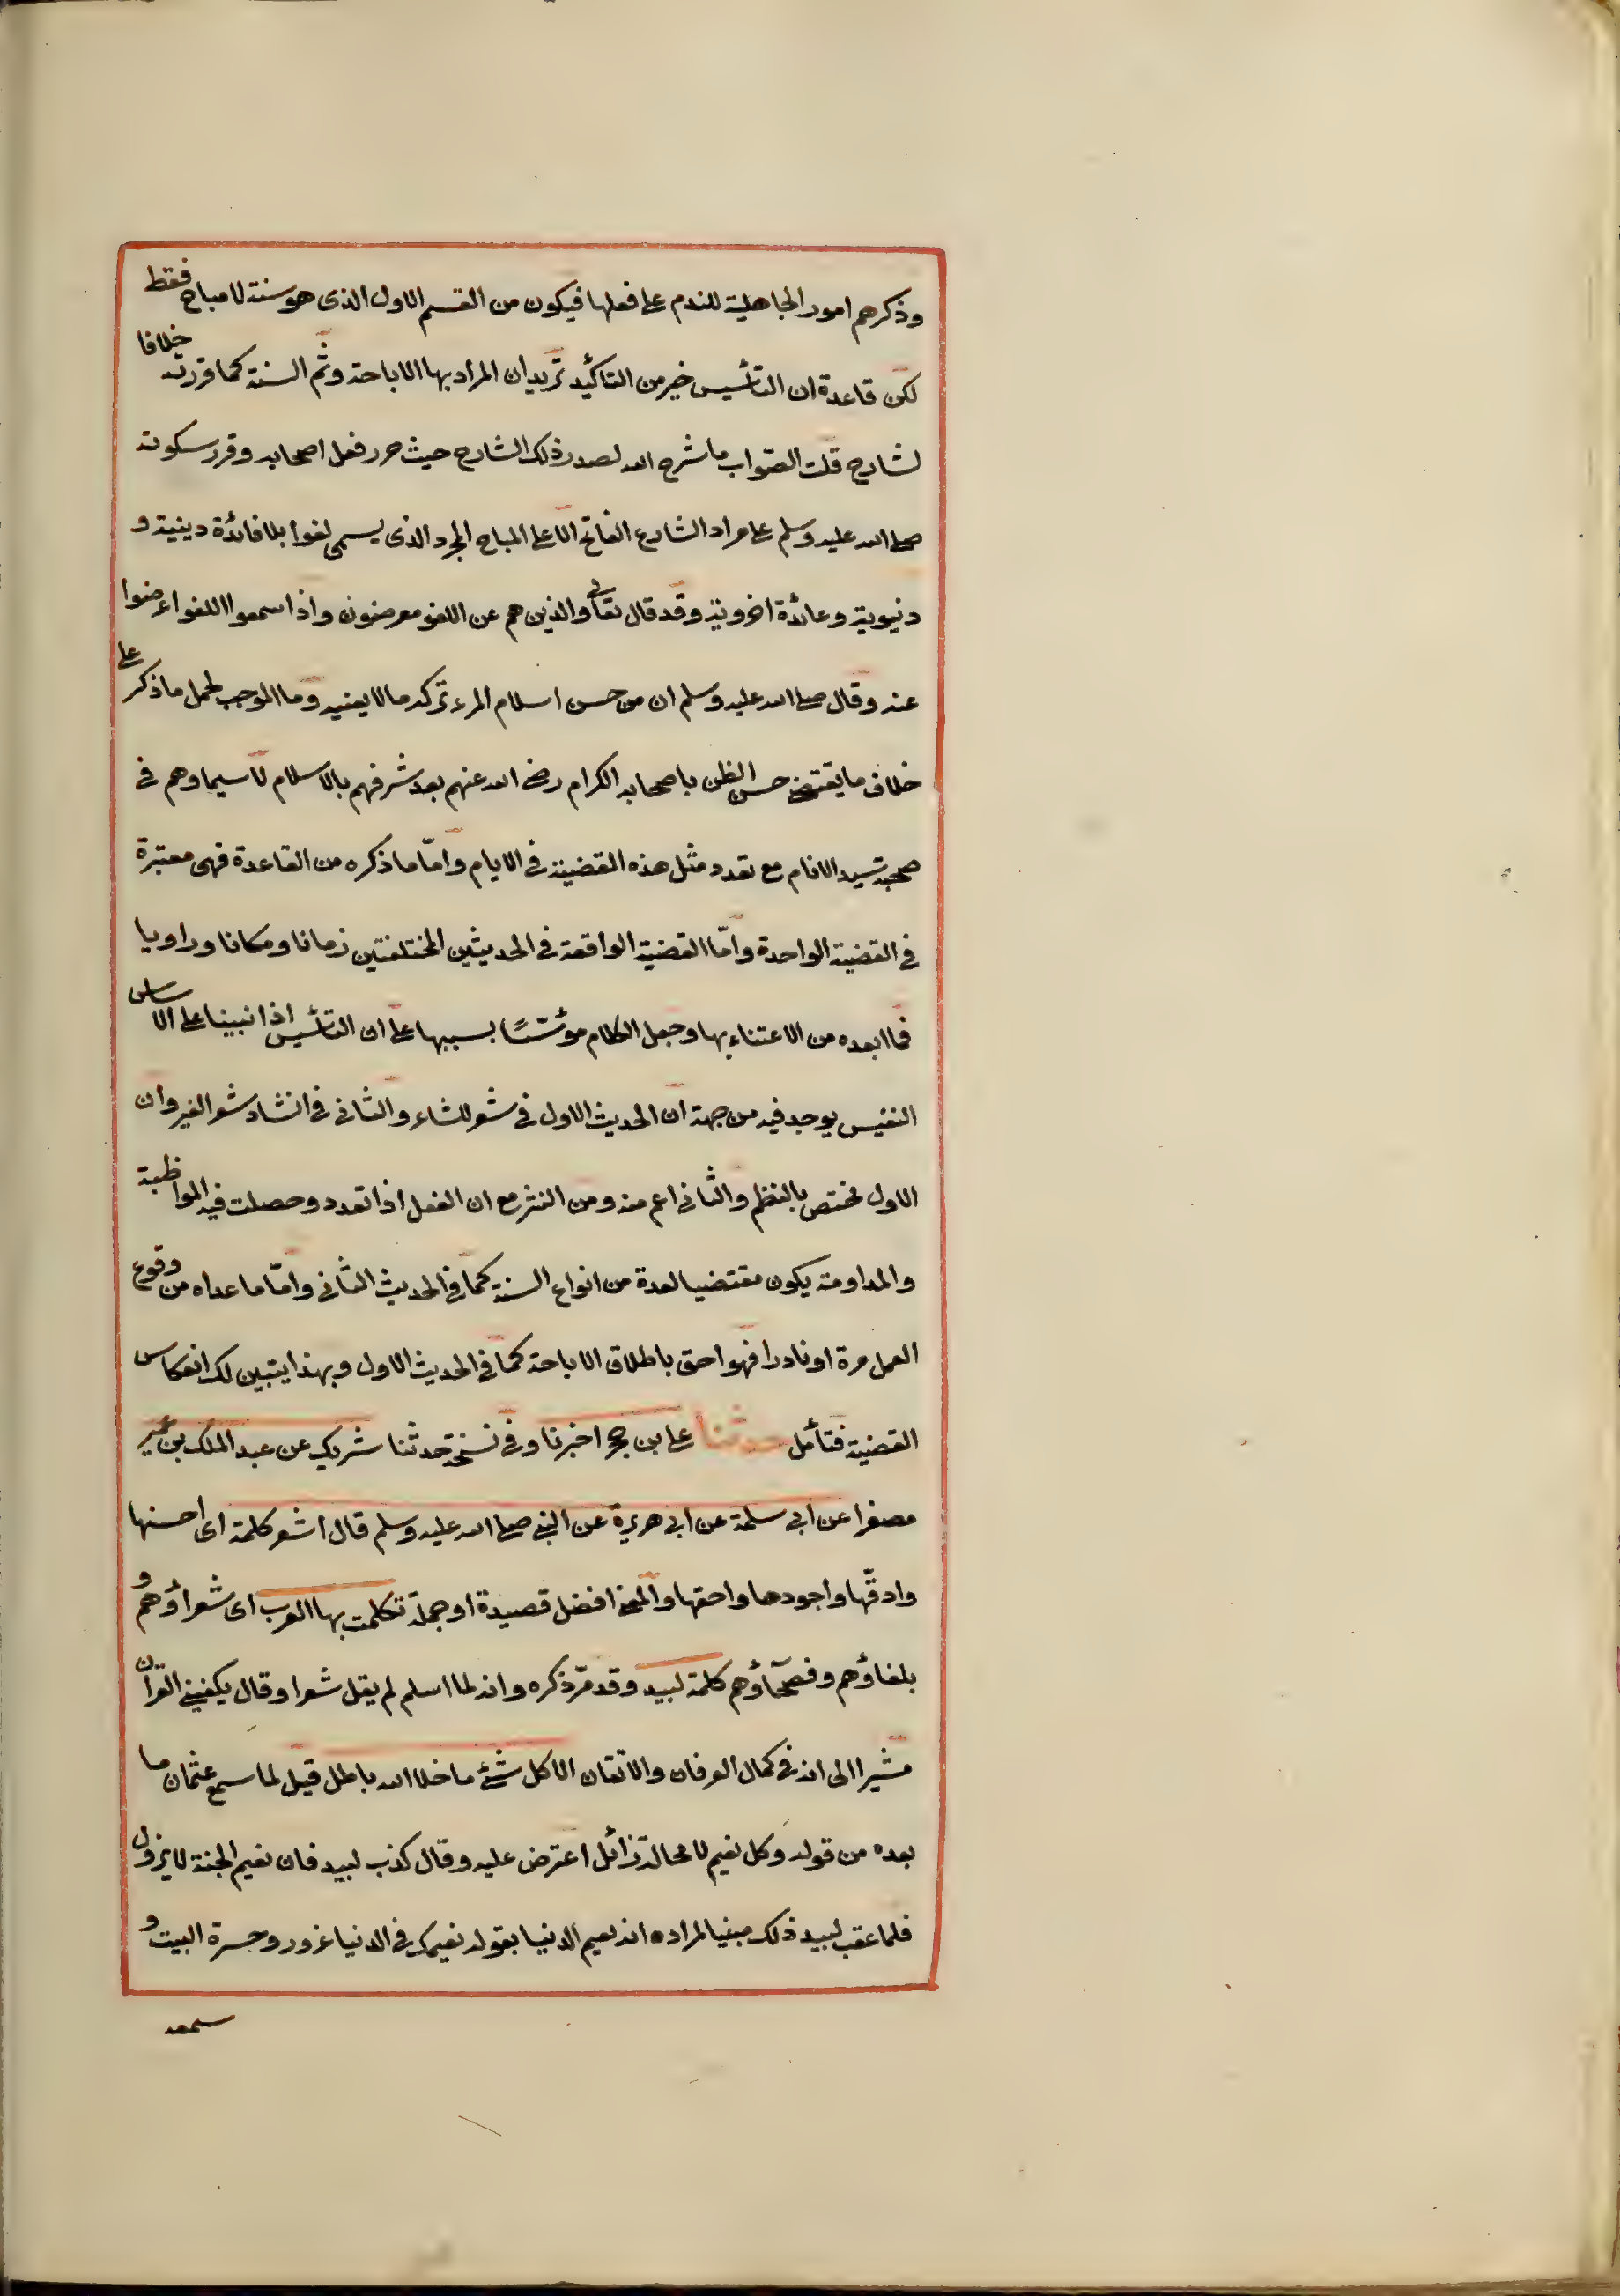 وذكرهم امور الجاهلية للندم على فعلها فيكون من القسم الاول الذى هو سنة لا مباح فقط
لكن قاعدة ان التأسيس خير من التاكيد تريد ان المراد بها الاباحة وثم السنة كما قررته خلافا
لشارح قلت الصواب ما شرح الله لصدر ذلك الشارح حيث حرر فعل اصحابه وقرر سكوته
صلى الله عليه وسلم على مراد الشارع الفاتح الا على المباح المجرد الذى يسمى لغوا بلا فائدة دينية و
دنيوية وعائدة اخروية وقد قال تعالى والذين هم عن اللغو معرضون واذا سمعوا اللغو اعرضوا
عنه وقال صلى الله عليه وسلم ان من حسن اسلام المرء تركه ما لا يعنيه وما الموجب لحمل ما ذكر على
خلاف ما يقتضى حسن الظن باصحابه الكرام رضى الله عنهم بعد شرفهم بالاسلام لا سيما وهم فى
صحبة سيد الانام مع تعدد مثل هذه القضية فى الايام وامّا ما ذكره من القاعدة فهى معتبرة
فى القضية الواحدة وامّا القضية الواقعة فى الحديثين المختلفتين زمانا ومكانا وراويا
فما ابعده من الاعتناء بها وجعل الكلام مؤسّسًا بسببها على ان التأسيس اذا نبينا على الاساس
النفيس يوجد فيه من جهة ان الحديث الاول فى شعر للشاء والثانى فى انشاد شعر الغير وان
الاول مختص بالنظم والثانى اعم منه ومن النثر مع ان الفعل اذا تعدد وحصلت فيه المواظبة
والمداومة يكون مقتضيا لعدة من انواع السنة كما فى الحديث الثانى وامّا ما عداه من وقوع
العمل مرة او نادرا فهو احق باطلاق الاباحة كما فى الحديث الاول وبهذا يتبين لك انعكاس
القضية فتأمل حدثنا على بن حجر اخبرنا وفى نسخة حدثنا شريك عن عبد الملك بن عمير
مصغرا عن ابى سلمة عن ابى هريرة عن النبى صلى الله عليه وسلم قال اشعر كلمة اى احسنها
وادقّها واجودها واحقها والمعنى افضل قصيدة او جملة تكلمت بها العرب اى شعراؤهم و
بلغاؤهم وفصحآؤهم كلمة لبيد وقد مرّ ذكره وانه لما اسلم لم يقل شعرا وقال يكفينى القرآن
مشيرا الى انه فى كمال العرفان والاتقان الا كل شئ ما خلا الله باطل قيل لما سمع عثمان ما
بعده من قوله وكل نعيم لا محالة زائل اعترض عليه وقال كذب لبيد فان نعيم الجنة لا يزول
فلما عقب لبيد ذلك مبنيا لمراده انه نعيم الدنيا بقوله نعيمك فى الدنيا غرور وحسرة البيت و
سمعه